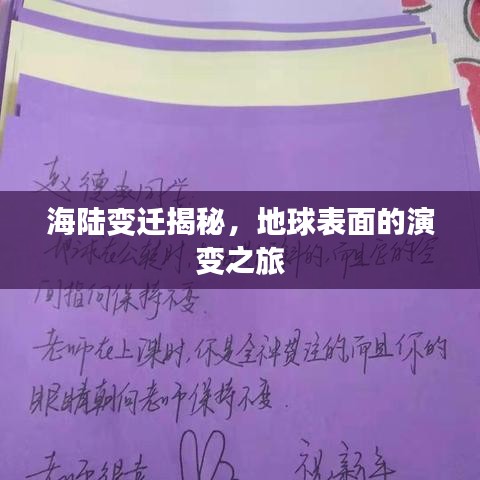 赵德 同学
海陆变迁揭秘，地球表面的演
变之旅
地球在公转时, 的,而且它的空
间指向保持不变.
老师在上课时,你是全神贯注的,而且你的
眼睛朝向老师保持不变.
老师很
祝新年